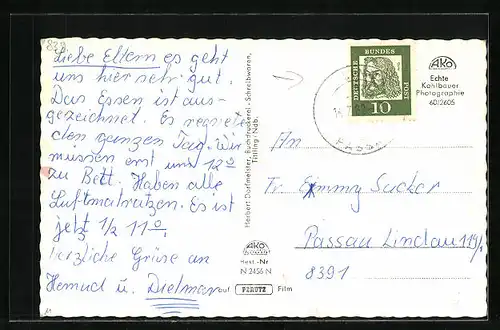 Liebe Eltern es geht
uns hier sehr gut.
Das Essen ist aus-
gezeichnet. Es regnete
den ganzen Tag. Wir
müssen erst um 12 0
zu Bett. Haben alle
Luftmatratzen. Es ist
jetzt 1/2 11 0.
Herzliche Grüße an
u. Dietmar
Herbert Dorfmeister, Buchdruckerei-Schreibwaren,
Tittling/Ndb.
AKO
Best.-Nr.
N 2456 N
auf PERUTZ Film
DEUTSCHE BUNDESPOST
10
PASSAU
AKO
Echte
Kohlbauer
Photographie
60/2605
An
Fr. Emmy
Passau Lindau
8391